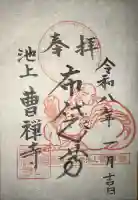 奉拝
令和八年一月吉日
布袋尊
池上 曹禅寺